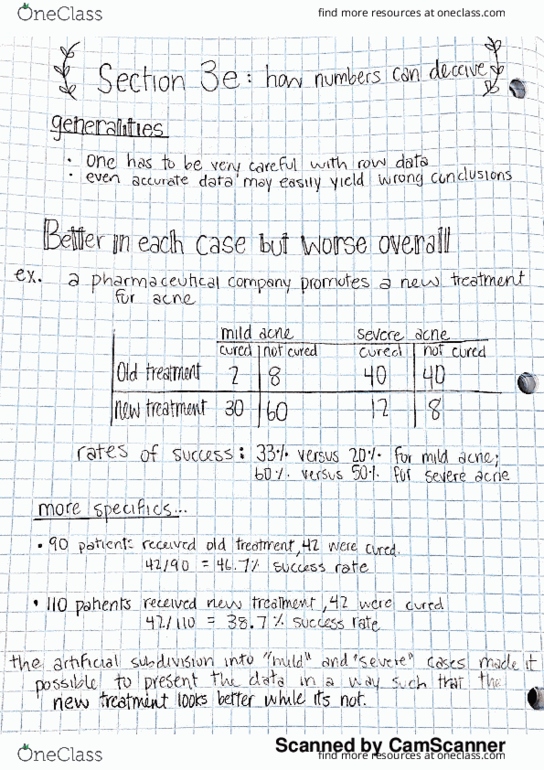 OneClass
find more resources at oneclass.com
Section 3e: how numbers can deceive
generalities
• One has to be very careful with raw data
• even accurate data may easily yield wrong conclusions
Better in each case but worse overall
ex. a pharmaceutical company promotes a new treatment
for acne
mild acne severe acne
cured not cured cured not cured
Old treatment 2 8 40 40
new treatment 30 60 12 8
rates of success: 33% versus 20% for mild acne;
60% versus 50% for severe acne
more specifics...
• 90 patients received old treatment, 42 were cured.
42/90 = 46.7% success rate
• 110 patients received new treatment, 42 were cured
42/110 = 38.7% success rate
the artificial subdivision into "mild" and "severe" cases made it
possible to present the data in a way such that the
new treatment looks better while it's not.
Scanned by CamScanner
OneClass
find more resources at oneclass.com